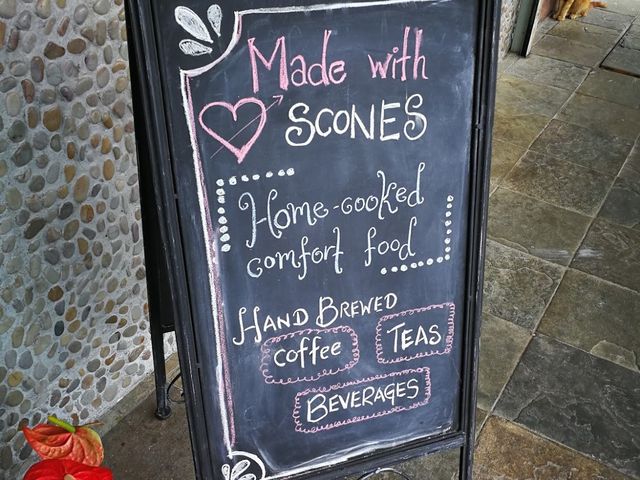 Made with
SCONES
Home-cooked
comfort food
HAND BREWED
coffee
TEAS
BEVERAGES